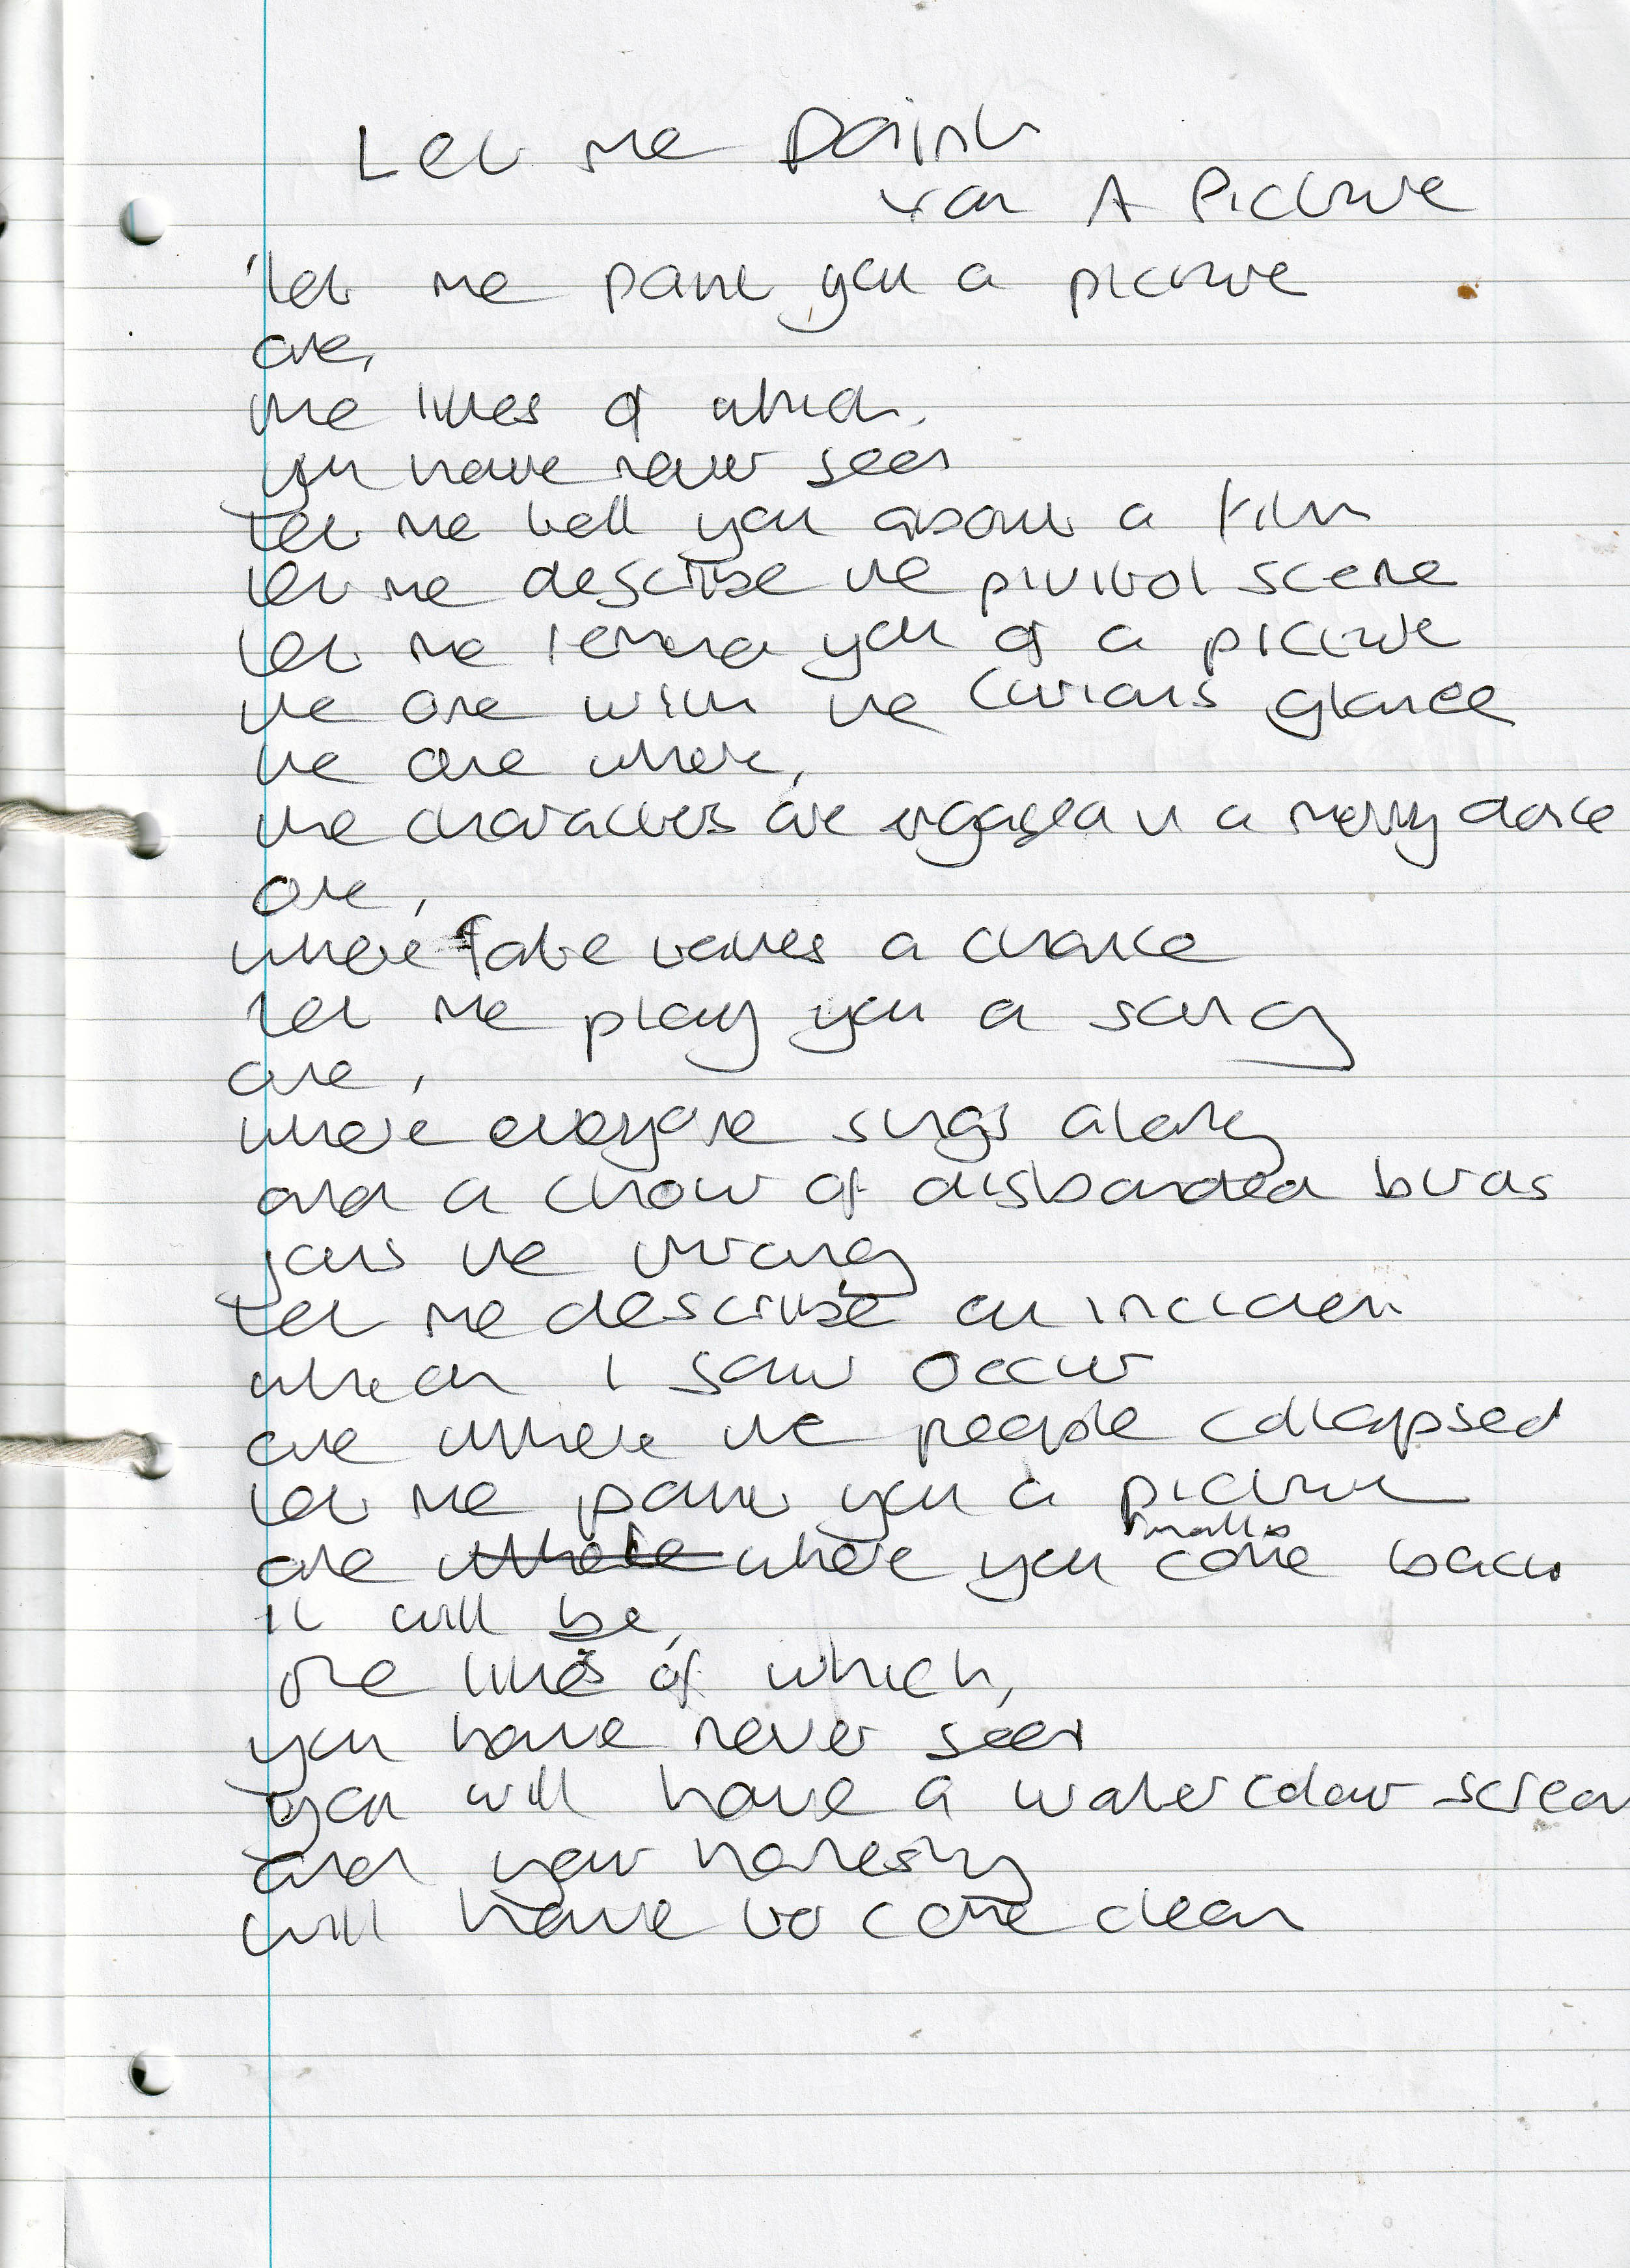 Let me Paint
You A Picture
'let me paint you a picture
one,
the likes of which,
you have never seen
Let me tell you about a film
let me describe the pivitol scene
let me remind you of a picture
the one with the curious glance
the one where,
the characters are engaged in a merry dance
one,
where fate takes a chance
let me play you a song
one,
where everyone sings along
and a choir of disbanded birds
joins the throng
Let me describe an incident
which I saw occur
one where the people collapsed
let me paint you a picture
one where where you finally come back
it will be,
the likes of which,
you have never seen
you will have a watercolour screen
and your honesty
will have to come clean